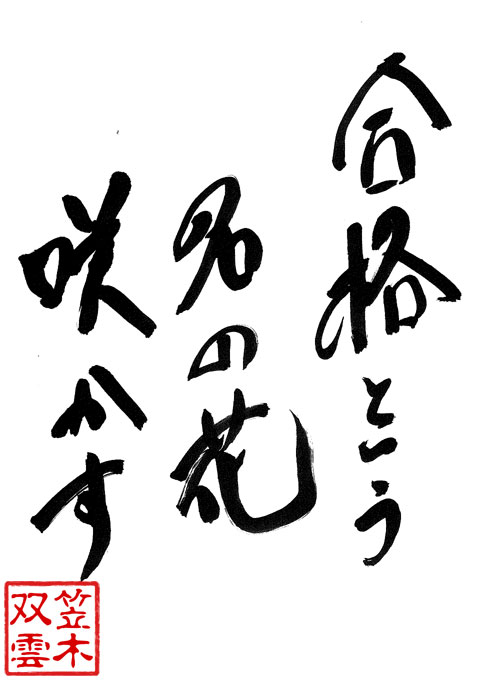 合格という
名の花
咲かす
笠木
双雲